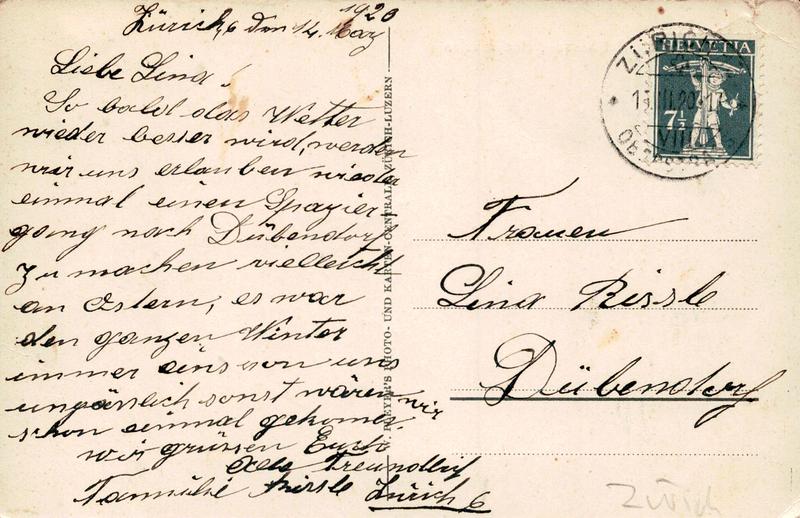 1920
Zürich 6 den 14. März
Liebe Lina!
So bald das Wetter
wieder besser wird, werden
wir uns erlauben wieder
einmal einen Spazier
gang nach Dübendorf
zu machen vielleicht
an Ostern, es war
den ganzen Winter
immer eins von uns
unpässlich sonst wären wir
schon einmal gekommen.
wir grüssen Euch
Alle Freundlich
Fammilie Rissle Zürich 6
PHOTO- UND KARTEN-CENTRALE ZÜRICH-LUZERN
HELVETIA
7½
Frauen
Lina Rissle
Dübendorf
Zürich